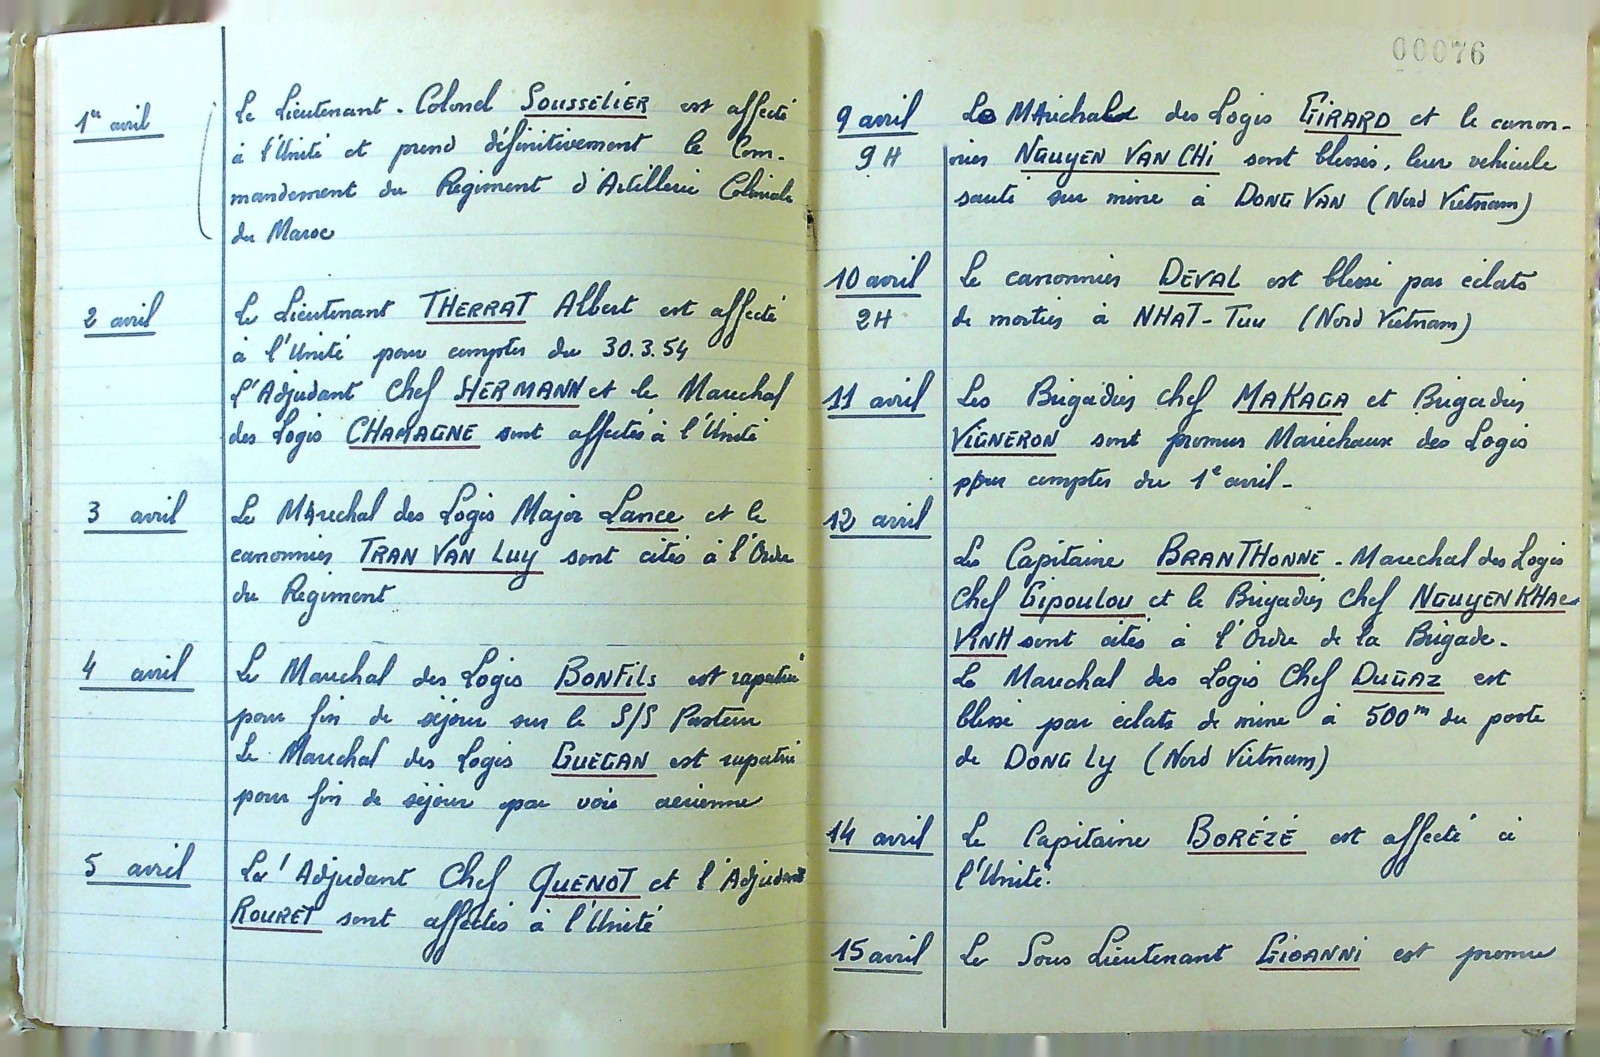 1er avril
Le Lieutenant-Colonel SOUSSELIER est affecté
à l'Unité et prend définitivement le Com-
mandement du Régiment d'Artillerie Coloniale
du Maroc
2 avril
Le Lieutenant THERRAT Albert est affecté
à l'Unité pour compter du 30.3.54
L'Adjudant Chef HERMANN et le Marechal
des Logis CHAMAGNE sont affectés à l'Unité
3 avril
Le Marechal des Logis Major Lance et le
canonnier TRAN VAN LUY sont cités à l'Ordre
du Régiment
4 avril
Le Marechal des Logis BONFILS est rapatrié
pour fin de séjour sur le S/S Pasteur
Le Marechal des Logis GUEGAN est rapatrié
pour fin de séjour par voie aérienne
5 avril
L'Adjudant Chef QUENOT et l'Adjudant
ROURET sont affectés à l'Unité
00076
9 avril
9H
Le Maréchal des Logis GIRARD et le canon-
nier NGUYEN VAN CHI sont blessés, leur véhicule
sauté sur mine à DONG VAN (Nord Vietnam)
10 avril
2H
Le canonnier DEVAL est blessé par éclats
de mortier à NHAT-TUU (Nord Vietnam)
11 avril
Les Brigadier chef MAKAGA et Brigadier
VIGNERON sont promus Maréchaux des Logis
pour compter du 1e avril-
12 avril
Le Capitaine BRANTHONNE - Marechal des Logis
Chef GIPOULOU et le Brigadier Chef NGUYEN KHAC
VINH sont cités à l'Ordre de la Brigade.
Le Marechal des Logis Chef DUGAZ est
blessé par éclats de mine à 500m du poste
de DONG LY (Nord Vietnam)
14 avril
Le Capitaine BORÉZÉ est affecté à
l'Unité.
15 avril
Le Sous Lieutenant GIOANNI est promu